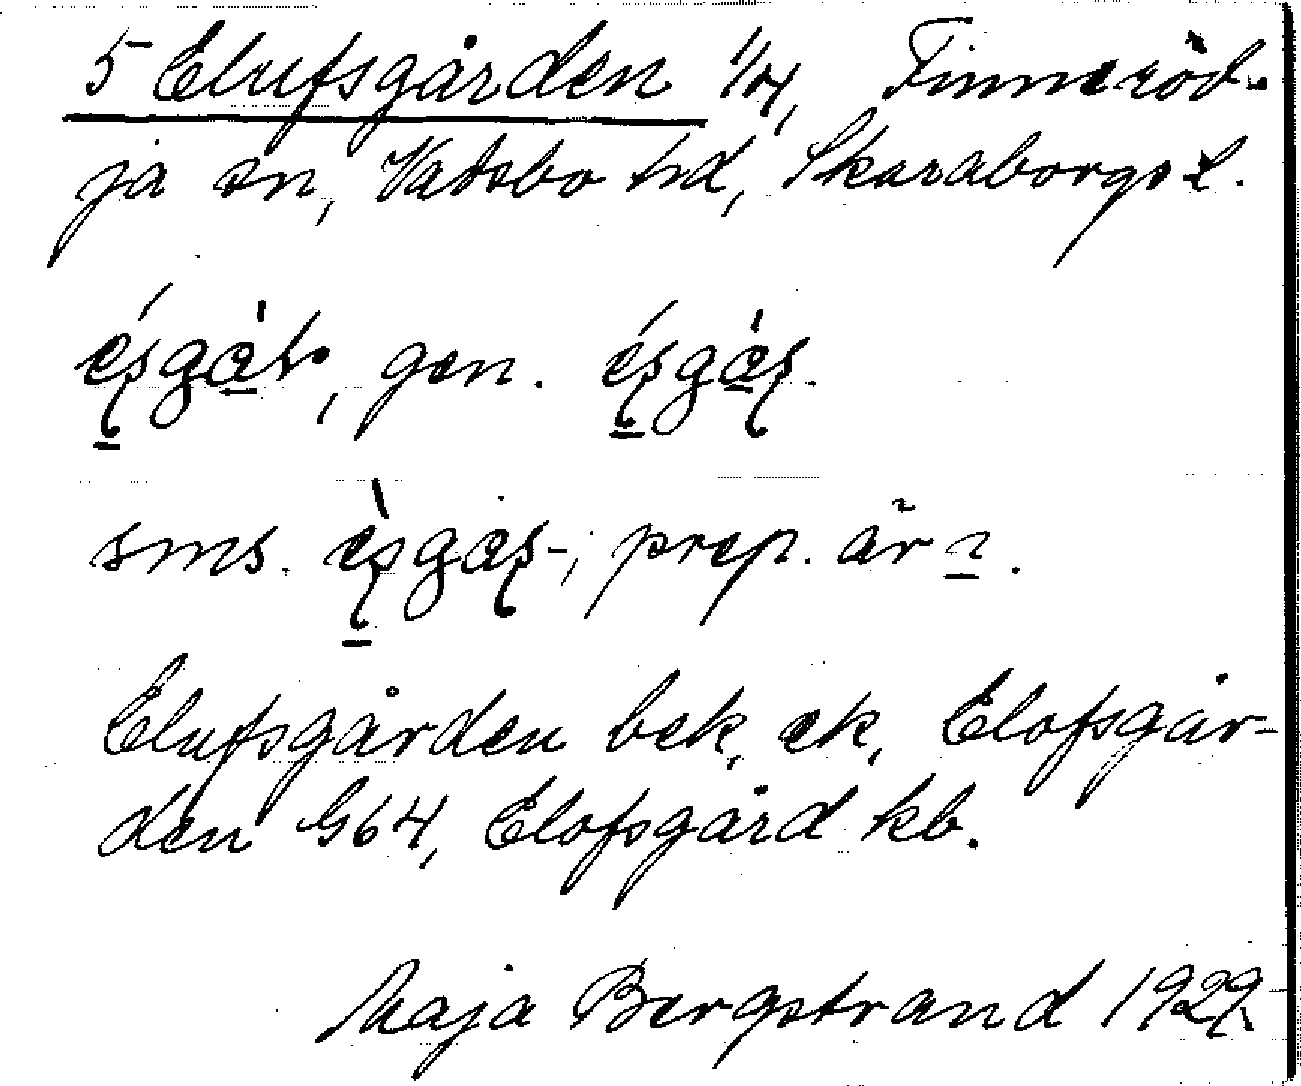 5 Elufsgården 1/4, Finneröd-
ja sn, Vadsbo hd, Skaraborgs l.
gen.
sms. prep.
Elufsgården bek, ek, Elofsgår-
den G64, Elofsgård kb.
Maja Bergstrand 1929